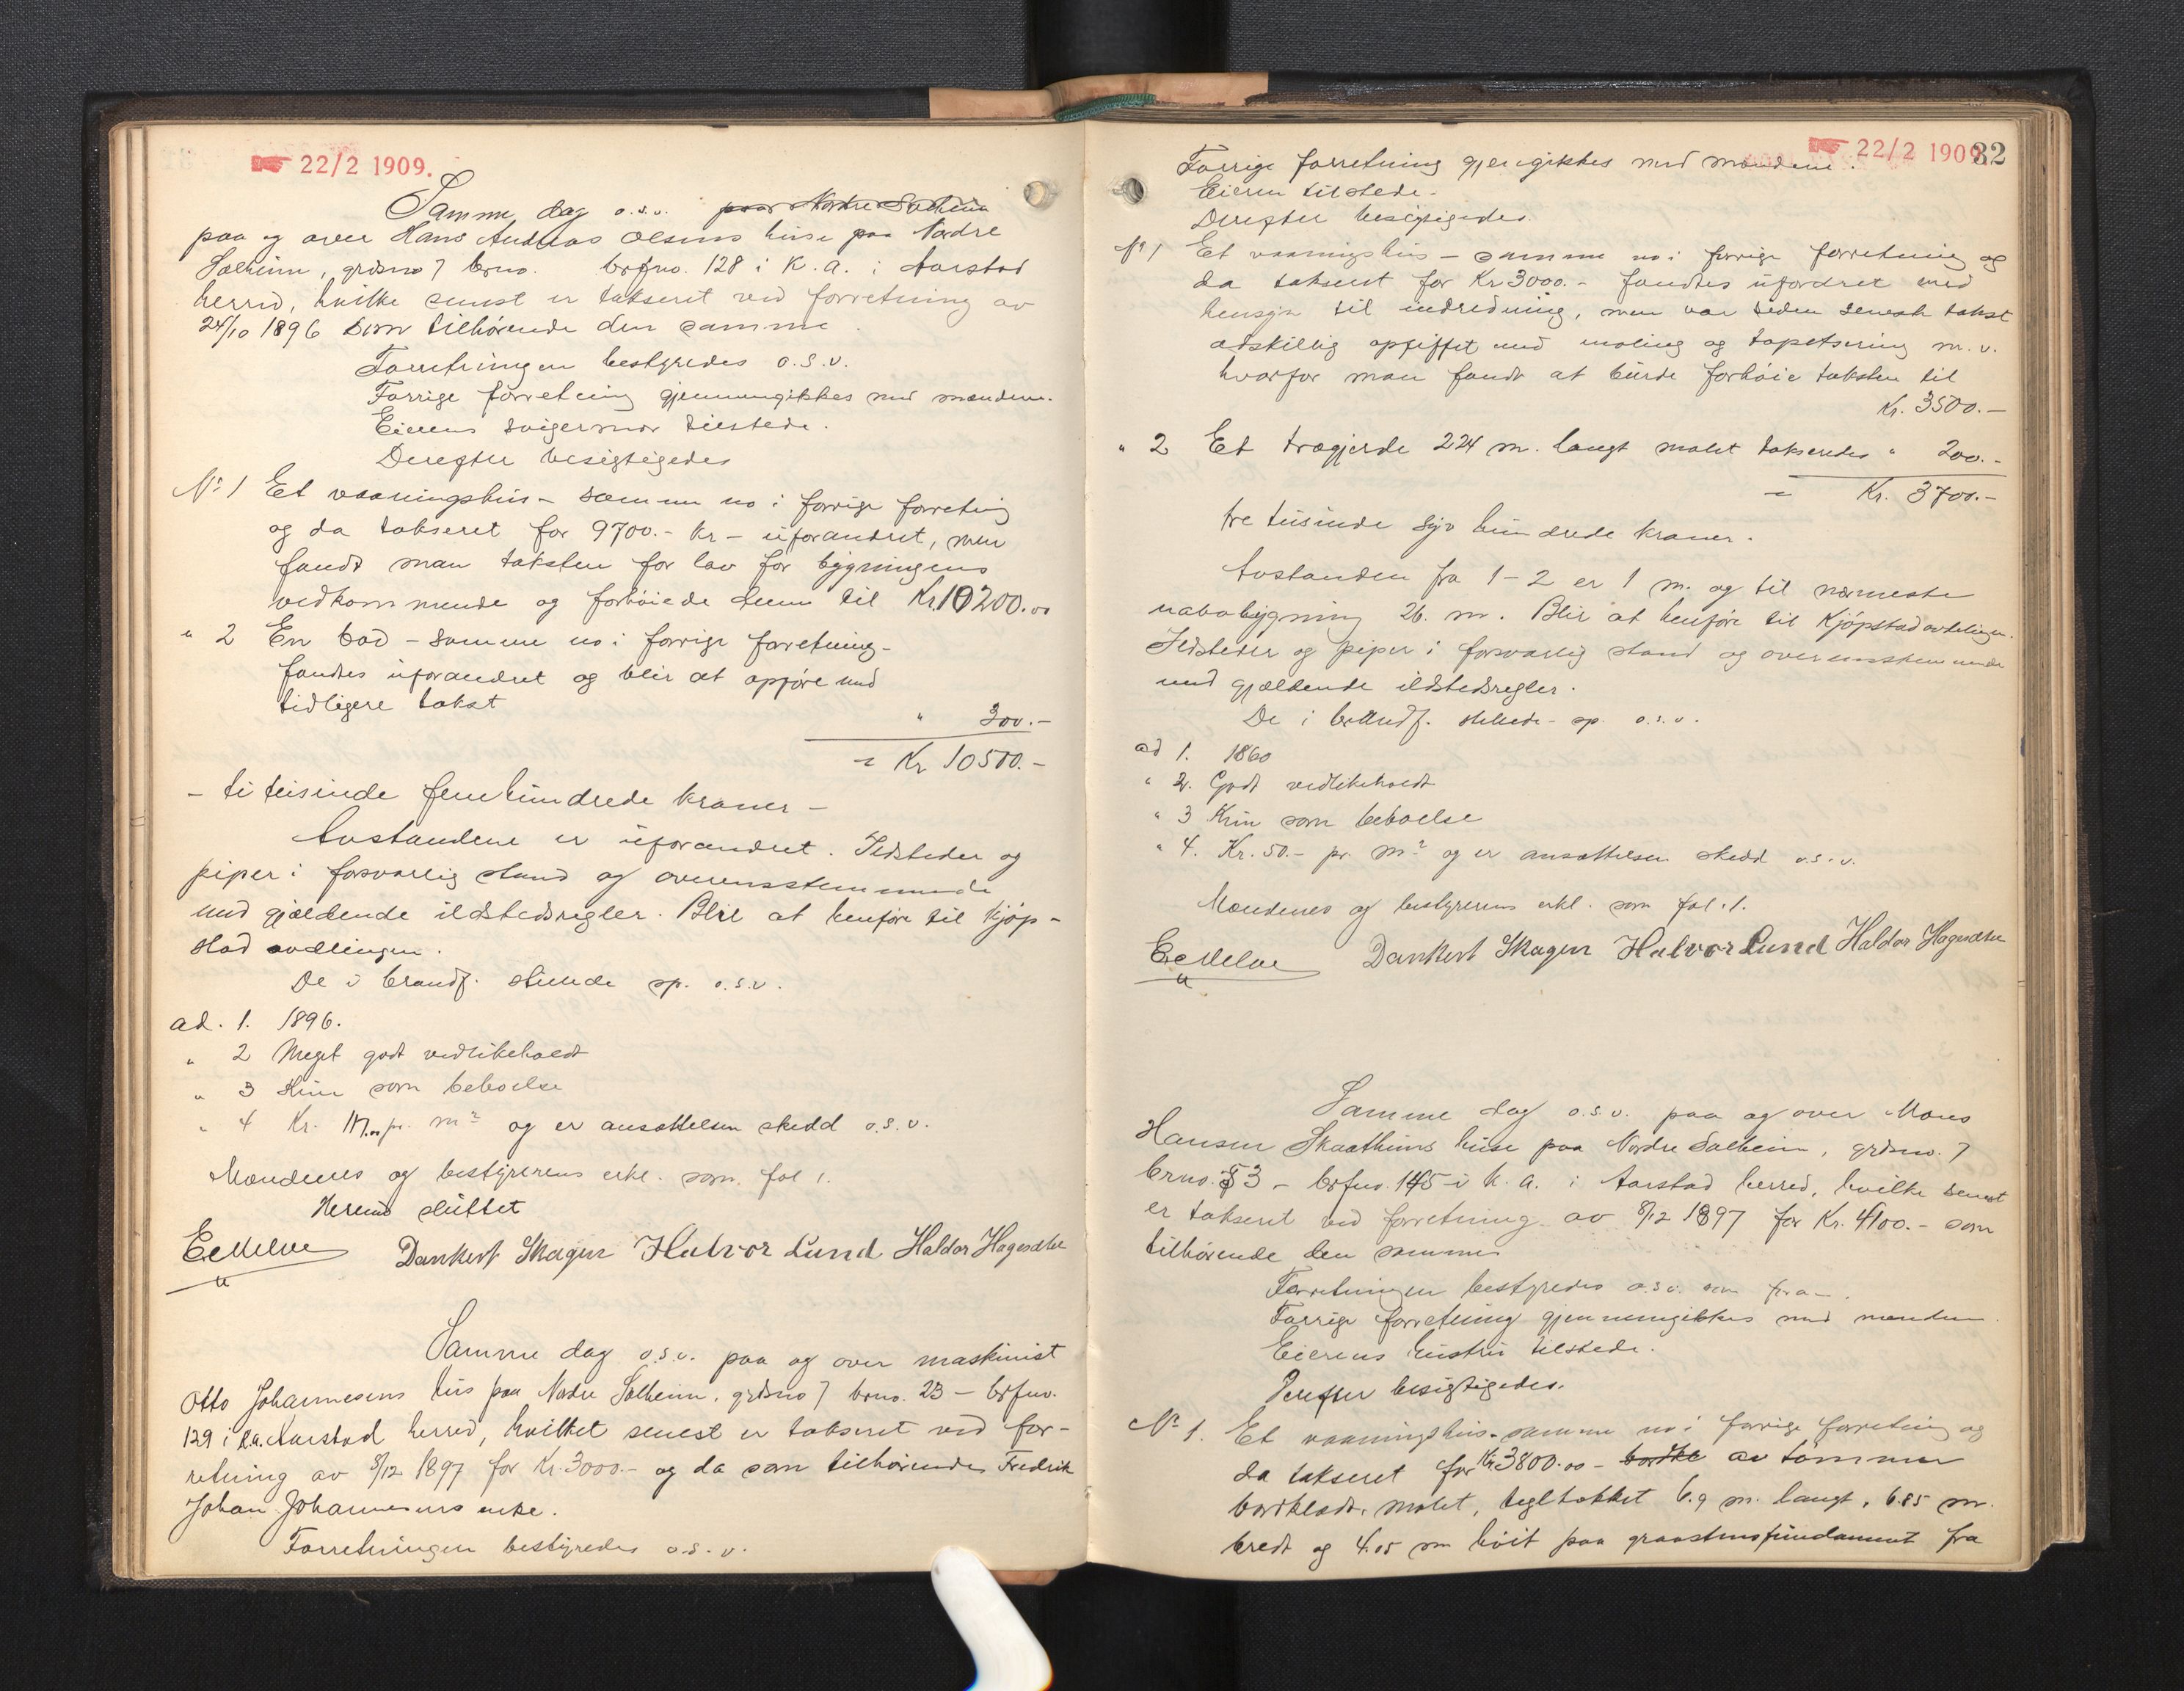 22/2 1909.
Samme dag o.s.v. paa Nordre Solheim
paa og over Hans Andreas Olsens huse paa Nordre
Solheim, grdsno 7 brno. brfno. 128 i K. a. i Aarstad
herred, hvilke senest er takseret ved forretning av
24/10 1896 som tilhørende den samme.
Forretningen bestyredes o.s.v.
Forrige forretning gjennemgikkes med mændene.
Eierens svigermor tilstede.
Derefter besigtigedes
No 1 Et vaaningshus – samme no i forrige forretning
og da takseret for 9700.- kr – uforandret, men
fandt man taksten for lav for bygningens
vedkommende og forhøiede denne til Kr 10200.00
" 2 En bod – samme no i forrige forretning –
fandtes uforandret og blir at opføre med
tidligere takst
" 300.-
= Kr 10500.-
– ti tusinde femhundrede kroner –
Avstandene er uforandret. Ildsteder og
piper i forsvarlig stand og overensstemmende
med gjældende ildstedsregler. Blir at henføre til Kjøp-
stad avdelingen.
De i brandf. stillede sp. o.s.v.
ad. 1. 1896.
" 2 Meget godt vedlikeholdt
" 3 Kun som beboelse
" 4 Kr. pr. m2 og er ansættelsen skedd o.s.v.
Mændenes og bestyrerens erkl. som fol 1.
Hermed sluttet
Dankert Skagen Halvor Lund Haldor
Samme dag o.s.v. paa og over maskinist
Otto Johannesens hus paa Nordre Solheim, grdsno 7 brno. 23 – brfno.
129 i K.a. Aarstad herred, hvilket senest er takseret ved for-
retning av 8/12 1897 for Kr. 3000.- og da som tilhørende Fredrik
Johan Johannesens enke.
Forretningen bestyredes o.s.v.
22/2 1909.
32
Forrige forretning gjengikkes med mændene.
Eieren tilstede.
Derefter besigtigedes.
No 1 Et vaaningshus – samme no i forrige forretning og
da takseret for Kr 3000.- fandtes uforandret med
hensyn til indredning, men var siden seneste takst
adskillig opfiffet med maling og tapetsering m. v.
hvorfor man fandt at burde forhøie taksten til
Kr. 3500.–
" 2 Et trægjerde 224 m. langt malet takseredes " 200.-
= Kr. 3700.-
tre tusinde syv hundrede kroner.
Avstanden fra 1-2 er 1 m. og til nærmeste
nabobygning 26. m. Blir at henføre til Kjøpstadavdelingen.
Ildsteder og piper i forsvarlig stand og overensstemmende
med gjældende ildstedsregler.
De i brandf. stillede sp. o.s.v.
ad 1. 1860
" 2. Godt vedlikeholdt
" 3 Kun som beboelse
" 4. Kr. 50.- pr. m2 og er ansættelsen skedd o.s.v.
Mændenes og bestyrerens erkl. som fol. 1.
Dankert Skagen Halvor Lund Haldor
Samme dag o.s.v. paa og over Mons
Hansen Skaatheims huse paa Nordre Solheim, grdsno. 7
brno. 53 – brfno. 145 i K. a. i Aarstad herred, hvilke senest
er takseret ved forretning av 8/12 1897 for Kr. 4100.- som
tilhørende den samme
Forretningen bestyredes o.s.v. som
Forrige forretning gjennemgikkes med mændene.
Eierens hustru tilstede.
Derefter besigtigedes.
No 1. Et vaaningshus – samme no i forrige forretning og
da takseret for Kr 3800.00 – bordkl av tømmer
bordklædt, malet, tegltækket 6.9 m. langt, 6.85 m.
bredt og 4.05 m høit paa graastensfundament fra